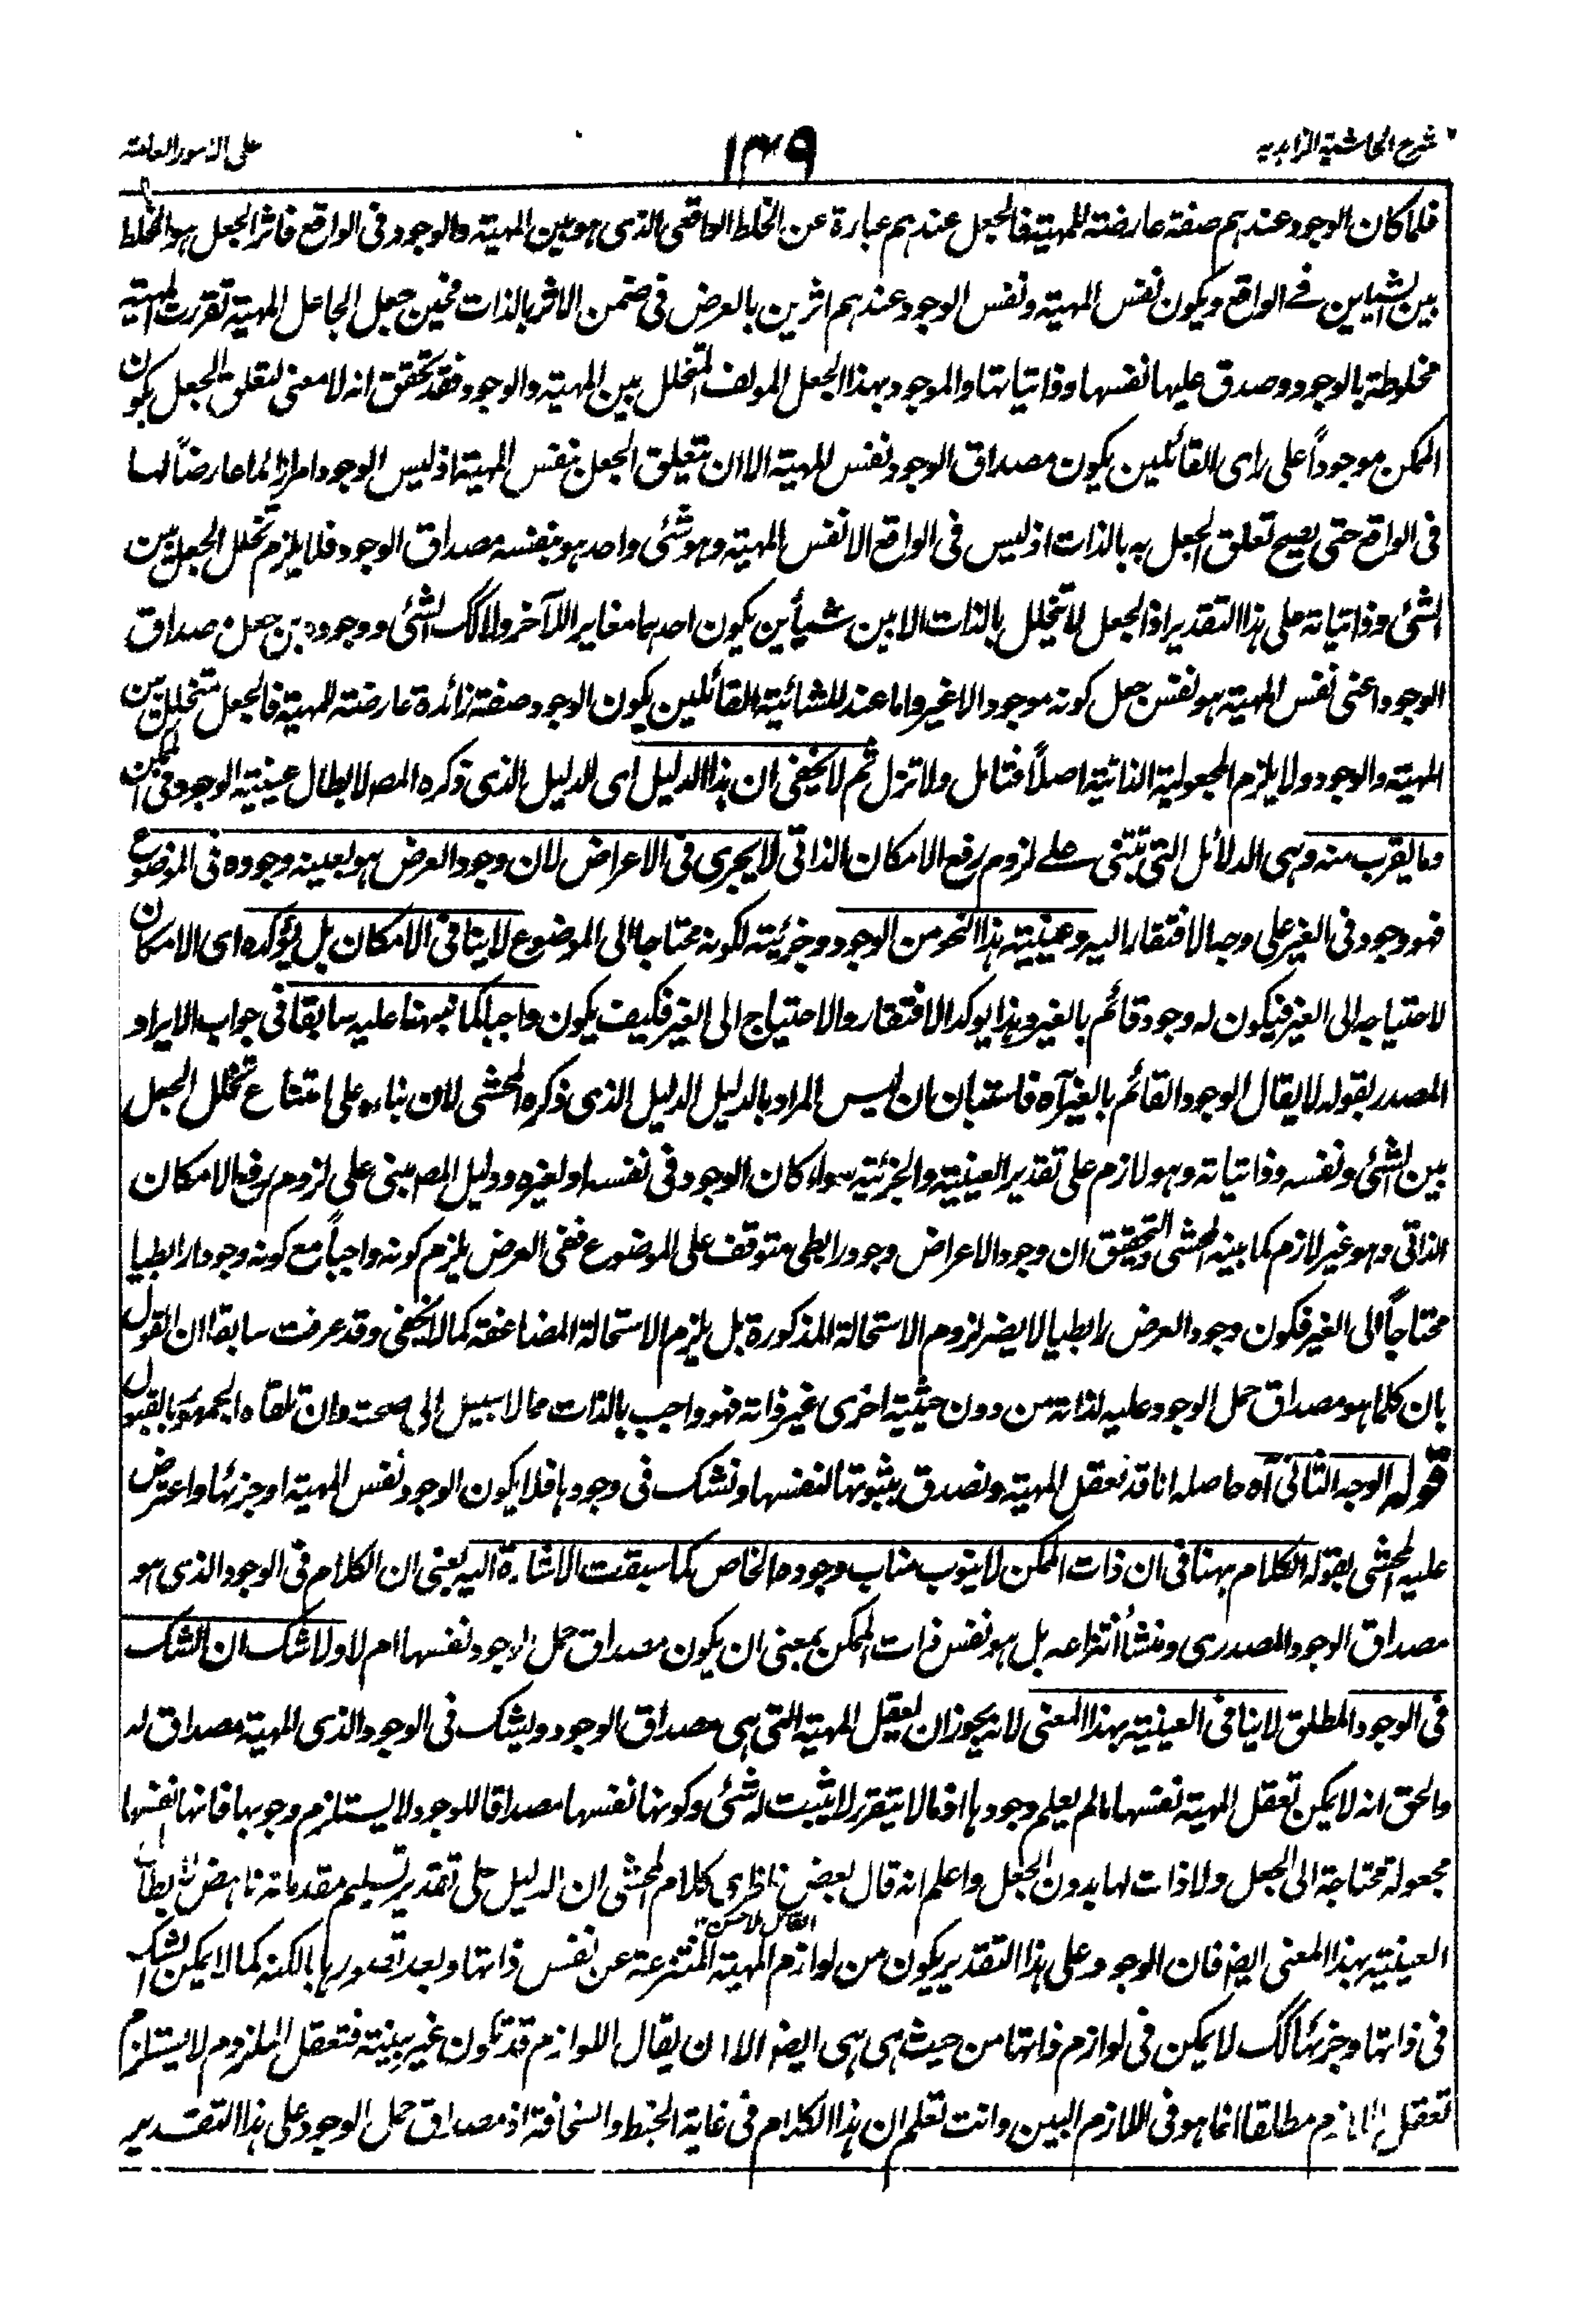 شرح الحاشية الزاهدية
١٣٩
على الامور العامة
فلما كان الوجود عندهم صفة عارضة للمهية فالجعل عندهم عبارة عن الخلط الواقعى الذى هو بين المهية والوجود فى الواقع فاثر الجعل هو الخلط
بين الشيأين فى الواقع ويكون نفس المهية ونفس الوجود عندهم اثرين بالعرض فى ضمن الاثر بالذات فحين جعل الجاعل المهية تقررت المهية
مخلوطة بالوجود وصدق عليها نفسها وذاتياتها والموجود بهذا الجعل المولف المتخلل بين المهية والوجود فقد تحقق انه لا معنى لتعلق الجعل بكون
الممكن موجوداً على راى القائلين بكون مصداق الوجود نفس المهية الا ان يتعلق الجعل بنفس المهية اذ ليس الوجود امرا زائدا عارضاً لها
فى الواقع حتى يصح تعلق الجعل به بالذات اذ ليس فى الواقع الا نفس المهية وهو شئى واحد هو بنفسه مصداق الوجود فلا يلزم تخلل الجعل بين
الشئى وذاتياته على هذا التقدير اذ الجعل لا يتخلل بالذات الا بين شيأين يكون احدهما مغاير اللآخر ولا كك الشئى ووجوده بن جعل مصداق
الوجود اعنى نفس المهية هو نفس جعل كونه موجود الاغير واما عند المشائية القائلين بكون الوجود صفة زائدة عارضة للمهية فالجعل متخلل بين
المهية والوجود ولا يلزم المجعولية الذاتية اصلاً فتامل ولا تزل ثم لا يخفى ان هذا الدليل اى الدليل الذى ذكره المصـ لابطال عينية الوجود فى الممكن
وما يقرب منه وهى الدلائل التى تبتنى على لزوم رفع الامكان الذاتى لا يجرى فى الاعراض لان وجود العرض هو بعينه وجوده فى الموضوع
فهو وجود فى الغير على وجه الافتقار اليه وعينية هذا النحو من الوجود وجزئيته لكونه محتاجا الى الموضوع لا ينافى الامكان بل يؤكده اى الامكان
لاحتياجه الى الغير فيكون له وجود قائم بالغير وهذا يوكد الافتقار والاحتياج الى الغير فكيف يكون واجبا كما نبهنا عليه سابقا فى جواب الايراد
المصدر بقوله لا يقال الوجود القائم بالغير آه فاستبان ان ليس المراد بالدليل الدليل الذى ذكره المحشى لان بناءه على امتناع تخلل الجعل
بين الشئى ونفسه وذاتياته وهو لازم على تقدير العينية والجزئية سواء كان الوجود فى نفسه او لغيره ودليل المصـ مبنى على لزوم رفع الامكان
الذاتى وهو غير لازم كما بينه المحشى والتحقيق ان وجود الاعراض وجود رابطى متوقف على الموضوع ففى العرض يلزم كونه واجباً مع كونه وجودا رابطيا
محتاجاً الى الغير فكون وجود العرض رابطيا لا يضر لزوم الاستحالة المذكورة بل يلزم الاستحالة المضاعفة كما لا يخفى وقد عرفت سابقا ان القول
بان كلما هو مصداق حمل الوجود عليه لذاته من دون حيثية اخرى غير ذاته فهو واجب بالذات مما لا سبيل الى صحته وان تلقاه الجمهور بالقبول
قوله الوجه الثانى آه حاصله انا قد نعقل المهية ونصدق بثبوتها لنفسها ونشك فى وجودها فلا يكون الوجود نفس المهية او جزئها واعترض
عليه المحشى بقوله الكلام ههنا فى ان ذات الممكن لا ينوب مناب وجوده الخاص كما سبقت الاشارة اليه يعنى ان الكلام فى الوجود الذى هو
مصداق الوجود المصدرى ومنشأ انتزاعه بل هو نفس ذات الممكن بمعنى ان يكون مصداق حمل الوجود نفسها ام لا ولا شك ان الشك
فى الوجود المطلق لا ينافى العينية بهذا المعنى لانه يجوز ان يعقل المهية التى هى مصداق الوجود ويشك فى الوجود الذى المهية مصداق له
والحق انه لا يمكن تعقل المهية نفسها ما لم يعلم وجودها اذ ما لا يتقرر لا يثبت له شئى وكونها نفسها مصداقا للوجود لا يستلزم وجوبها فانها نفسها
مجعولة محتاجة الى الجعل ولا ذات لها بدون الجعل واعلم انه قال بعض ناظرى كلام المحشى ان الدليل على تقدير تسليم مقدماته ناهض لابطال
العينية بهذا المعنى ايضا فان الوجود على هذا التقدير يكون من لوازم المهية المنتزعة عن نفس ذاتها وبعد تصورها بالكنه كما لا يمكن الشك
فى ذاتها وجزئها كك لا يمكن فى لوازم ذاتها من حيث هى هى ايضا الا ان يقال اللوازم قد تكون غير بينة فتعقل الملزوم لا يستلزم
تعقل اللازم مطلقا انما هو فى اللازم البين وانت تعلم ان هذا الكلام فى غاية الخبط والسخافة اذ مصداق حمل الوجود على هذا التقدير